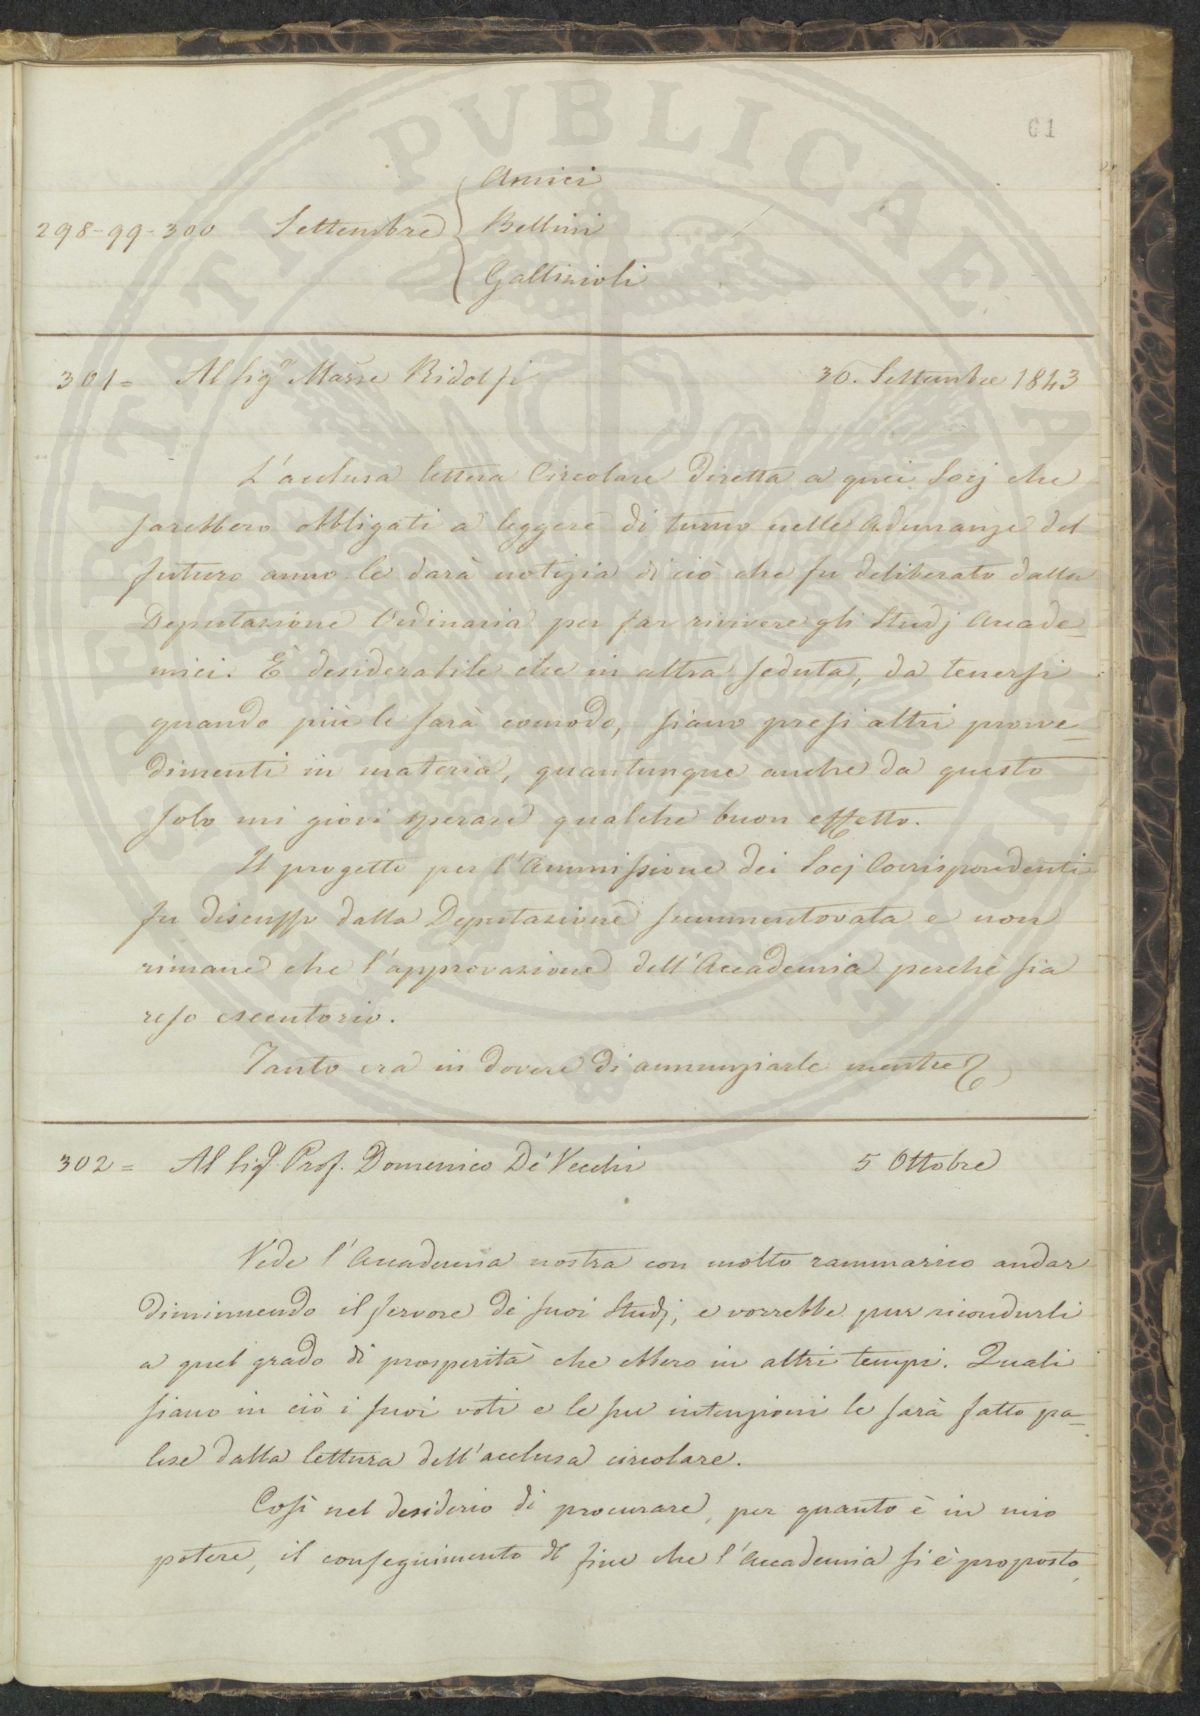 61
Amici
298-99-300 Settembre Bellini
Gallizioli
301= Al Sigr Marse Ridolfi 30. Settembre 1843
L'acclusa lettera Circolare diretta a quei Socj che
sarebbero obbligati a leggere di turno nelle Adunanze del
futuro anno le darà notizia di ciò che fu deliberato dalla
Deputazione Ordinaria per far rivivere gli Studj Accade-
mici. È desiderabile che in altra seduta, da tenersi
quando più le sarà comodo, siano presi altri provve-
dimenti in materia, quantunque anche da questo
solo mi giovi sperare qualche buon effetto.
Il progetto per l'Ammissione dei Socj Corrispondenti
fu discusso dalla Deputazione summentovata e non
rimane che l'approvazione dell'Accademia perchè sia
reso esecutorio.
Tanto era in dovere di annunziarle mentre
302= Al Sigr Prof. Domenico De' Vecchi 5 Ottobre
Vede l'Accademia nostra con molto rammarico andar
diminuendo il fervore de' suoi Studj, e vorrebbe pur ricondurli
a quel grado di prosperità che ebbero in altri tempi. Quali
siano in ciò i suoi voti e le sue intenzioni le sarà fatto pa-
lese dalla lettura dell'acclusa circolare.
Così nel desiderio di procurare, per quanto è in mio
potere, il conseguimento del fine che l'Accademia si è proposto,
PUBLICAE
PROSPERITATI